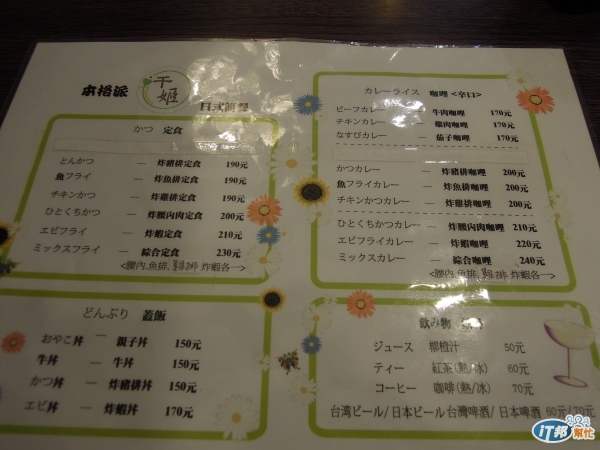 本格派 千姬 日式簡餐
かつ 定食
とんかつ — 炸豬排定食 190元
魚フライ — 炸魚排定食 190元
チキンかつ — 炸雞排定食 190元
ひとくちかつ — 炸腰內肉定食 200元
エビフライ — 炸蝦定食 210元
ミックスフライ — 綜合定食 230元
<腰內.魚排.雞排 炸蝦各一>
どんぶり 蓋飯
おやこ丼 — 親子丼 150元
牛丼 — 牛丼 150元
かつ丼 — 炸豬排丼 150元
エビ丼 — 炸蝦丼 170元
カレーライス 咖哩 <辛口>
ビーフカレー — 牛肉咖哩 170元
チキンカレー — 雞肉咖哩 170元
なすびカレー — 茄子咖哩 170元
かつカレー — 炸豬排咖哩 200元
魚フライカレー — 炸魚排咖哩 200元
チキンかつカレー — 炸雞排咖哩 200元
ひとくちかつカレー — 炸腰內肉咖哩 210元
エビフライカレー — 炸蝦咖哩 220元
ミックスカレー — 綜合咖哩 240元
<腰內.魚排.雞排 炸蝦各一>
飲み物
ジュース 柳橙汁 50元
ティー 紅茶(熱/冰) 60元
コーヒー 咖啡(熱/冰) 70元
台湾ビール/日本ビール 台灣啤酒/日本啤酒 60元/70元
iT邦幫忙